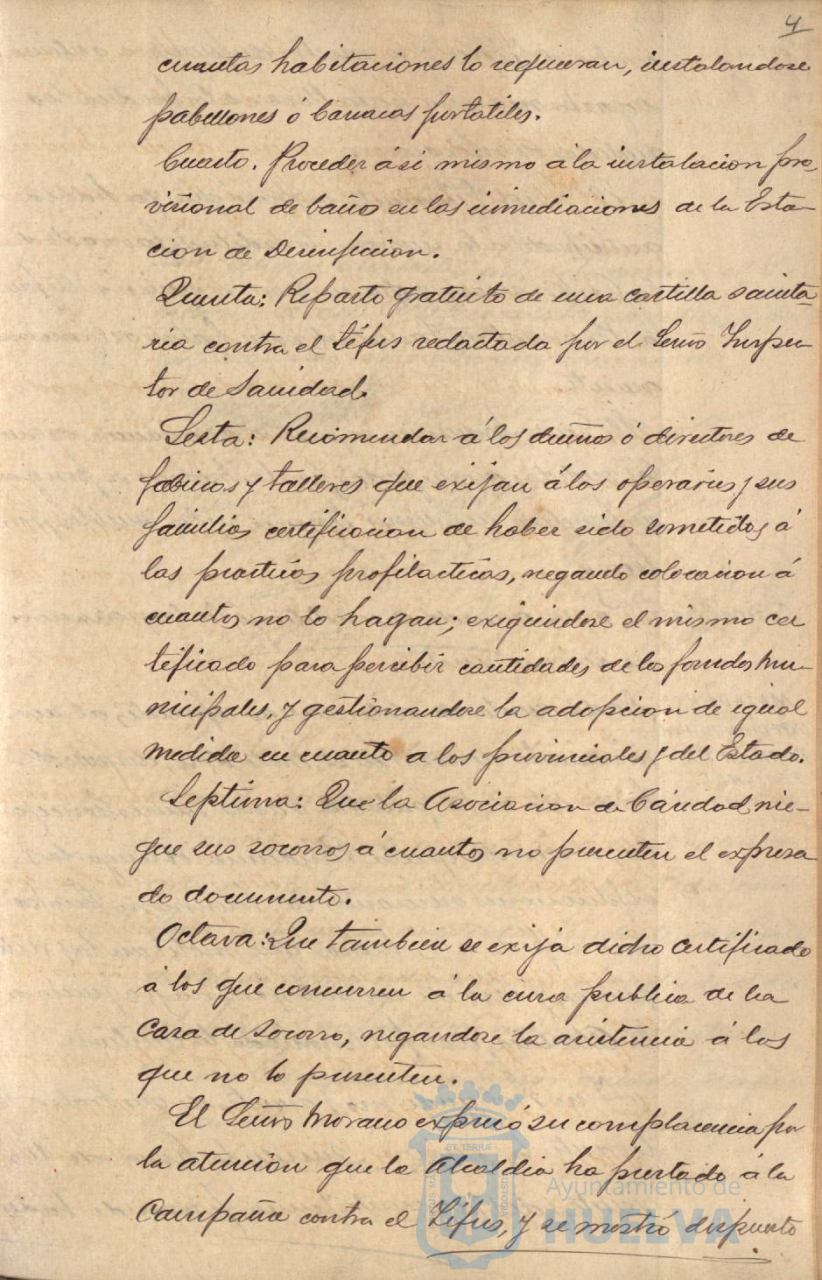 4
cuantas habitaciones lo requieran, instalandose
pabellones ó barracas portatiles.
Cuarto. Proceder ási mismo á la instalacion pro-
visional de baños en las inmediaciones de la Esta-
cion de Desinfeccion.
Quinta: Reparto gratuito de una cartilla sanita-
ria contra el Tífus redactada por el Señor Inspec-
tor de Sanidad.
Sexta: Recomendar á los dueños ó directores de
fabricas y talleres que exijan á los operarios y sus
familias certificacion de haber sido sometidos á
las practicas profilacticas, negando colocacion á
cuantos no lo hagan; exigiendose el mismo cer
tificado para percibir cantidades de los fondos mu-
nicipales, y gestionandose la adopcion de igual
medida en cuanto a los provinciales y del Estado.
Septima: Que la Asociacion de Caridad nie-
gue sus socorros á cuantos no presenten el expresa
do documento.
Octava: Que tambien se exija dicho certificado
á los que concurren á la cura publica de la
Casa de Socorro, negandose la asistencia á los
que no lo presenten.
El Señor Morano expresó su complacencia por
la atencion que la Alcaldia ha prestado á la
Campaña contra el Tífus, y se mostró dispuesto
Ayuntamiento de
HUELVA